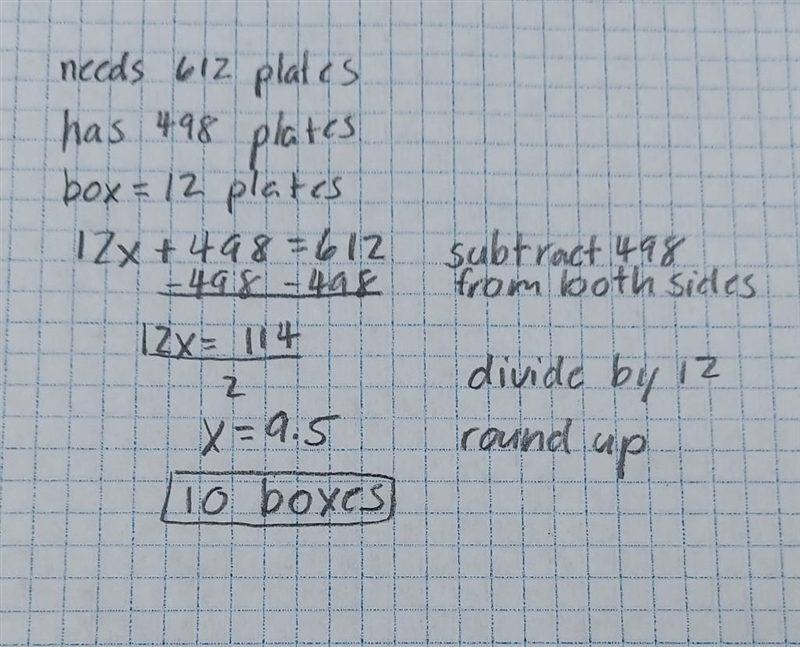 needs 612 plates
has 498 plates
box = 12 plates
12x + 498 = 612 subtract 498
-498 -498 from both sides
12x = 114
2 divide by 12
x = 9.5 round up
10 boxes